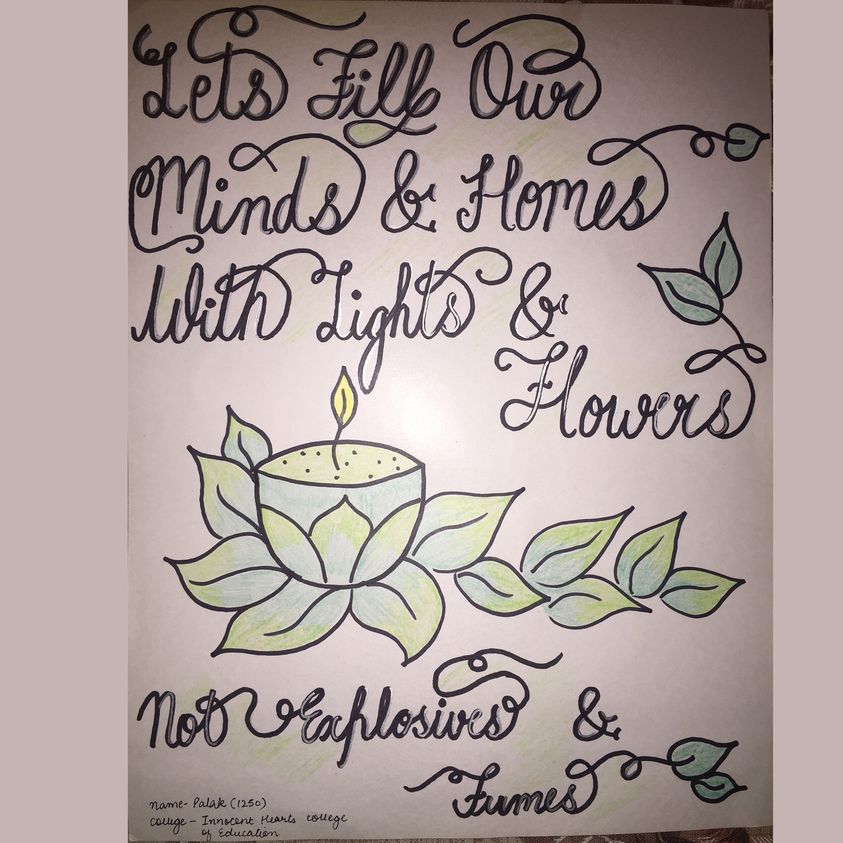 Lets Fill Our
Minds & Homes
With Lights &
Flowers
Not Explosives &
Fumes
Name- Palak (1250)
College - Innocent Hearts College
of Education